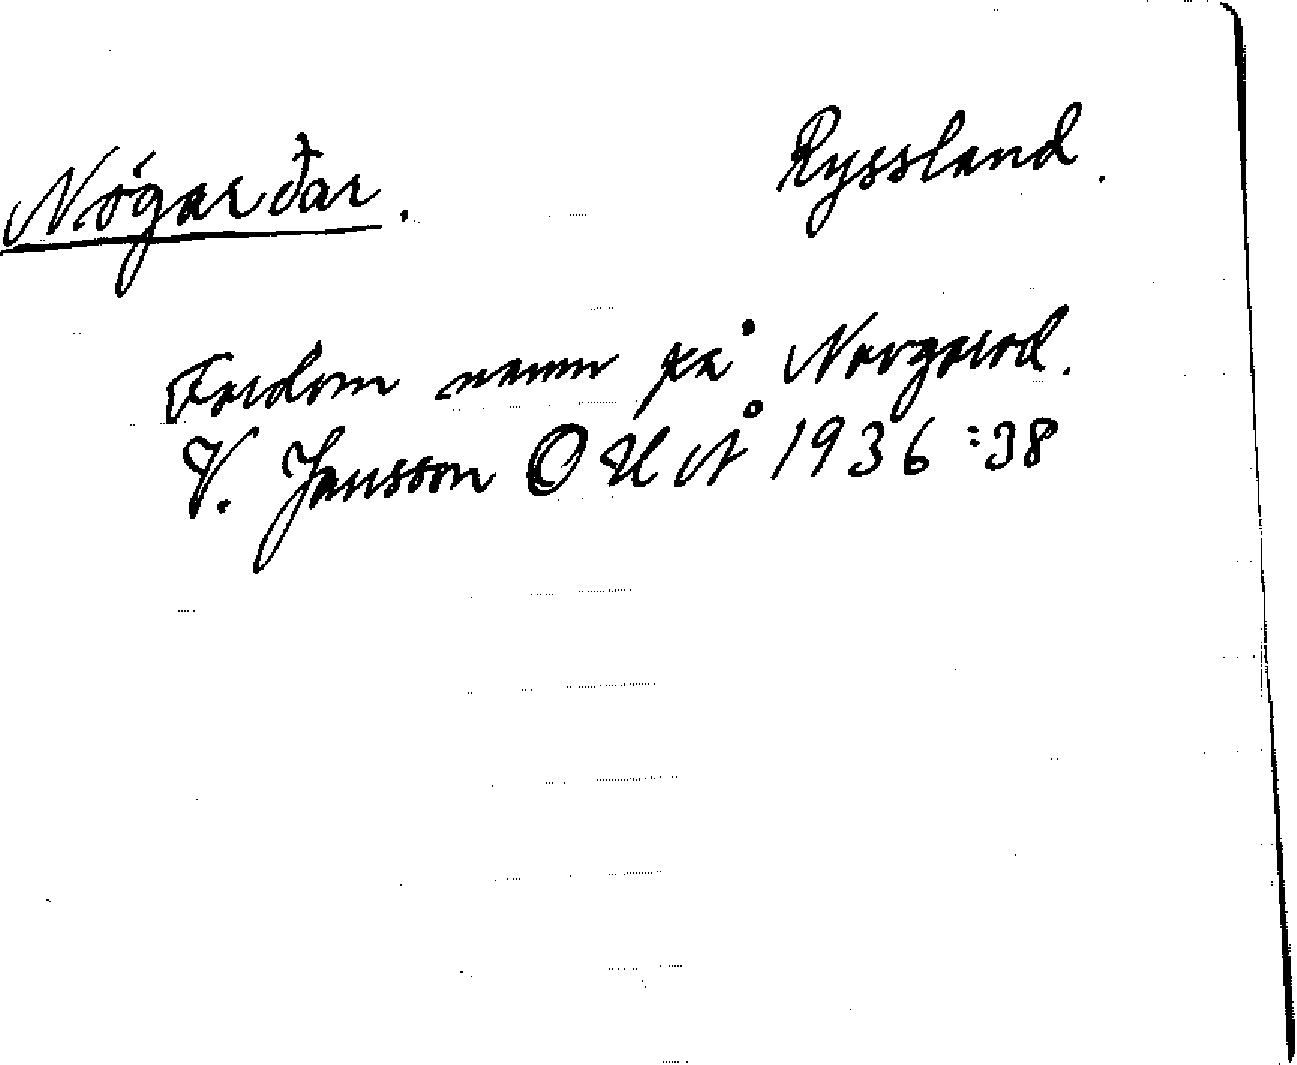 Nógarðar.
Ryssland.
Fordom namn på Novgorod.
V. Jansson OUÅ 1936:38